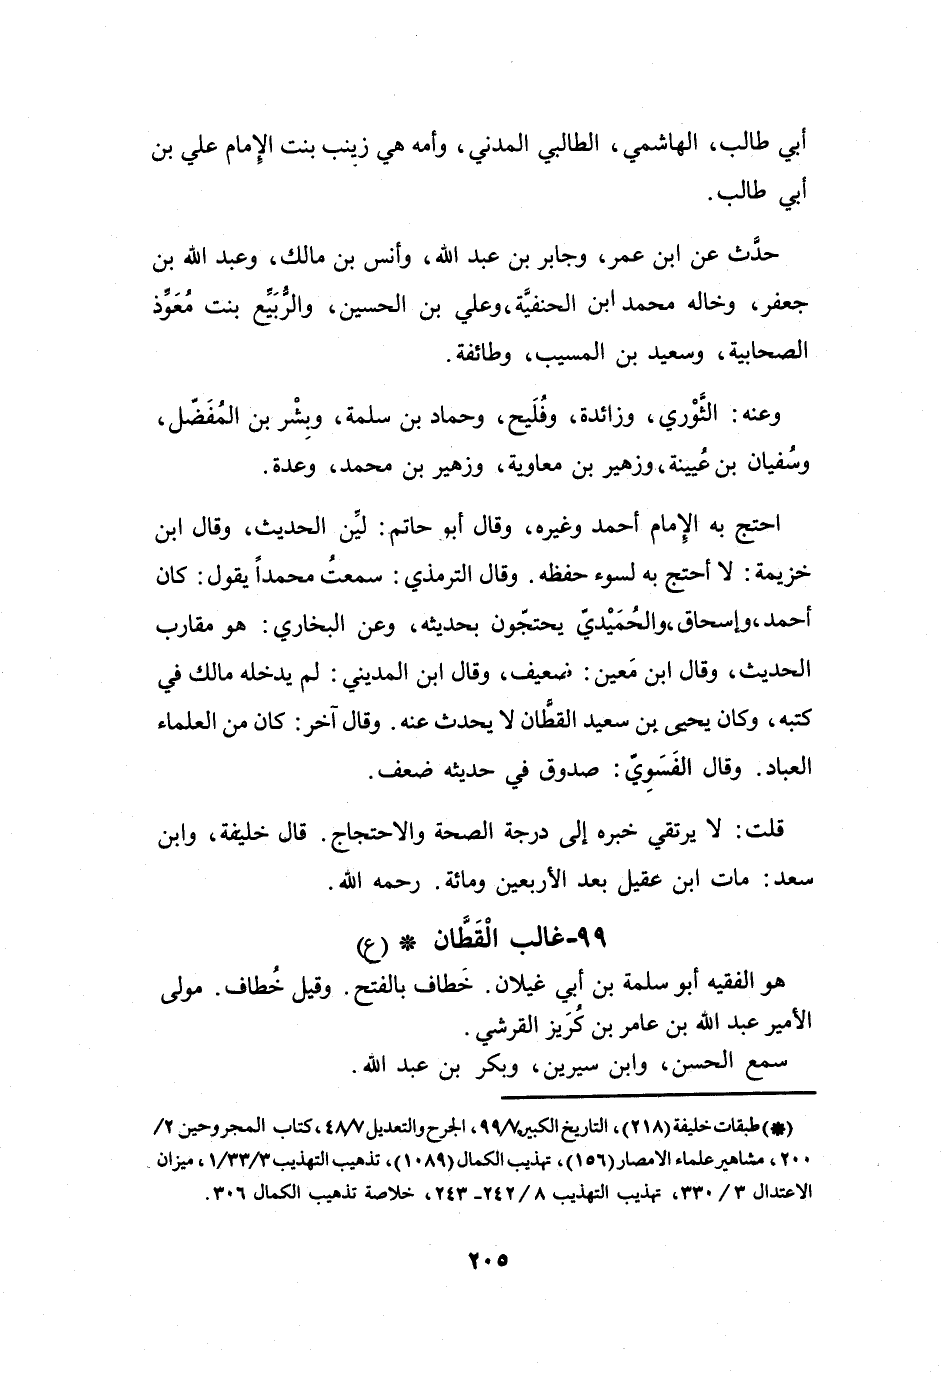 أبي طالب، الهاشمي، الطالبي المدني، وأمه هي زينب بنت الإمام علي بن
أبي طالب.
حدَّث عن ابن عمر، وجابر بن عبد الله، وأنس بن مالك، وعبد الله بن
جعفر، وخاله محمد ابن الحنفيَّة،وعلي بن الحسين، والرُّبَيِّع بنت مُعَوِّذ
الصحابية، وسعيد بن المسيب، وطائفة.
وعنه: الثَّوْري، وزائدة، وفُلَيح، وحماد بن سلمة، وبِشْر بن المُفَضّل،
وسُفيان بن عُيينة،وزهير بن معاوية، وزهير بن محمد، وعدة.
احتج به الإمام أحمد وغيره، وقال أبو حاتم: ليِّن الحديث، وقال ابن
خزيمة: لا أحتج به لسوء حفظه. وقال الترمذي: سمعتُ محمداً يقول: كان
أحمد،وإسحاق،والحُمَيْديّ يحتجّون بحديثه، وعن البخاري: هو مقارب
الحديث، وقال ابن مَعين: ضعيف، وقال ابن المديني: لم يدخله مالك في
كتبه، وكان يحيى بن سعيد القطَّان لا يحدث عنه. وقال آخر: كان من العلماء
العباد. وقال الفَسَوِيّ: صدوق في حديثه ضعف.
قلت: لا يرتقي خبره إلى درجة الصحة والاحتجاج. قال خليفة، وابن
سعد: مات ابن عقيل بعد الأربعين ومائة. رحمه الله.
٩٩-غالب الْقَطَّان * (ع)
هو الفقيه أبو سلمة بن أبي غيلان. خَطاف بالفتح. وقيل خُطاف. مولى
الأمير عبد الله بن عامر بن كُرَيز القرشي.
سمع الحسن، وابن سيرين، وبكر بن عبد الله.
(*)طبقات خليفة(٢١٨)، التاريخ الكبير٩٩/٧، الجرح والتعديل ٤٨/٧،كتاب المجروحين ٢/
٢٠٠، مشاهير علماء الامصار (١٥٦)، تهذيب الكمال (١٠٨٩)، تذهيب التهذيب ١/٣٣/٣، ميزان
الاعتدال ٣/ ٣٣٠، تهذيب التهذيب ٨/ ٢٤٢- ٢٤٣، خلاصة تذهيب الكمال ٣٠٦.
٢٠٥